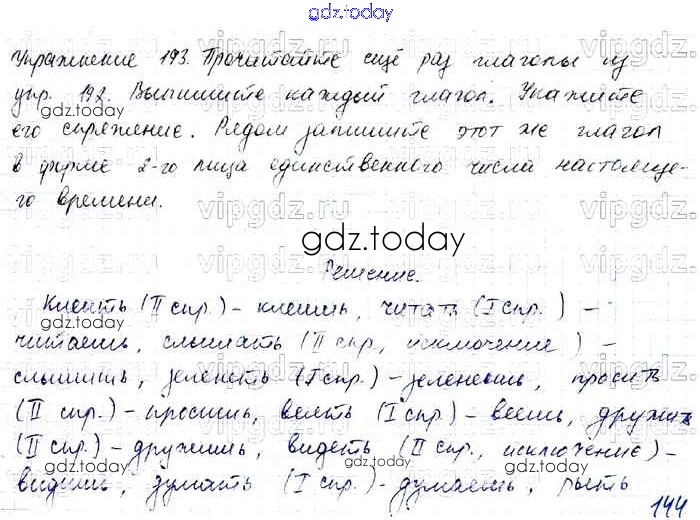 gdz.today
Упражнение 193. Прочитайте ещё раз глаголы из
упр. 192. Выпишите каждый глагол. Укажите
его спряжение. Рядом запишите этот же глагол
в форме 2-го лица единственного числа настояще-
го времени.
Решение.
Клеить (II спр.) - клеишь, читать (I спр.) -
читаешь, слышать (II спр., исключение) -
слышишь, зеленеть (I спр.) - зеленеешь, просить
(II спр.) - просишь, веять (I спр.) - веешь, дружить
(II спр.) - дружишь, видеть (II спр., исключение) -
видишь, думать (I спр.) - думаешь, рыть
144